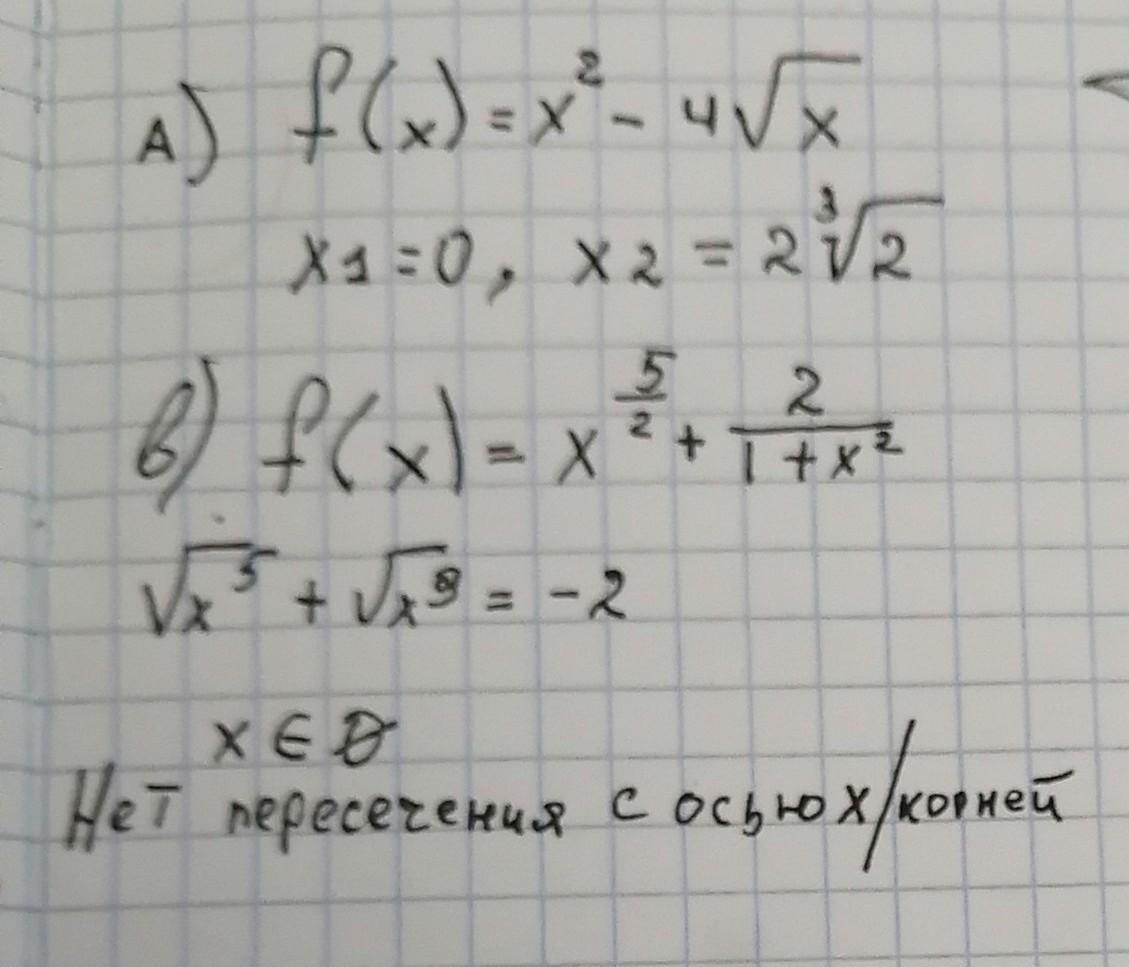 А) f(x) = x² - 4√x
x1 = 0, x2 = 2∛2
в) f(x) = x^(5/2) + 2/(1 + x²)
√x⁵ + √x⁹ = -2
x ∈ ∅
Нет пересечения с осью x/корней